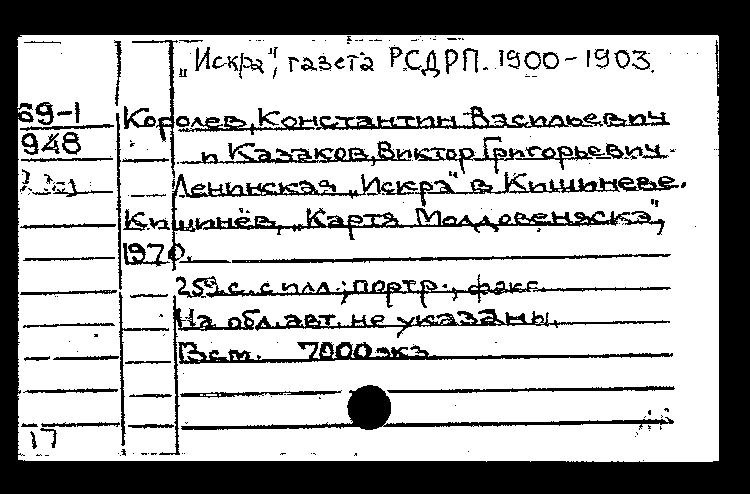 „Искра", газета РСДРП. 1900-1903.
69-1
948
Королев, Константин Васильевич
и Казаков, Виктор Григорьевич.
Ленинская „Искра" в Кишиневе.
Кишинёв, „Картя Молдовеняскэ",
1970.
259 с. с илл.; портр., факс.
На обл. авт. не указаны.
В ст. 7000 экз.
17